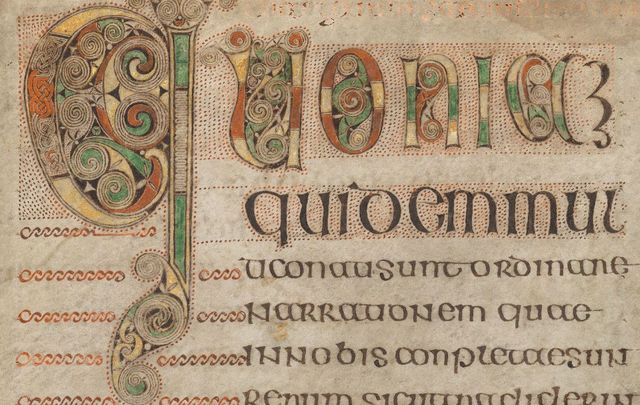 QUONIAM
quidem mul
ti conati sunt ordinare
narrationem quae
in nobis conpletae sun
rerum sicut